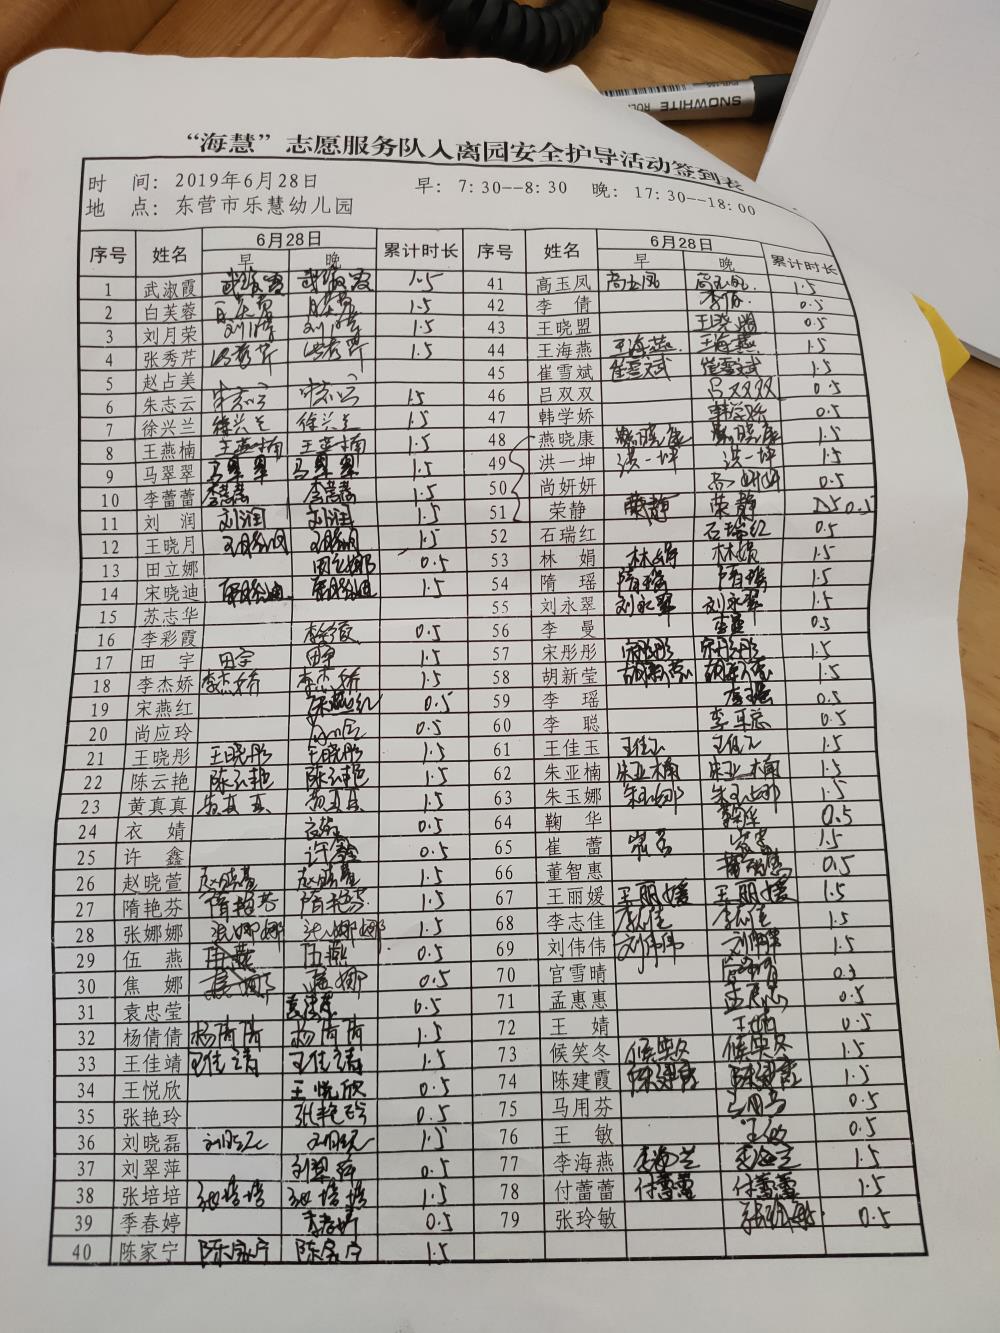 SNOWHITE
“海慧”志愿服务队入离园安全护导活动签到表
时 间: 2019年6月28日 早: 7:30--8:30 晚: 17:30--18:00
地 点: 东营市乐慧幼儿园
序号 姓名 6月28日 累计时长 序号 姓名 6月28日 累计时长
早 晚 早 晚
1 武淑霞 武淑霞 武淑霞 1.5 41 高玉凤 高玉凤 高玉凤 1.5
2 白芙蓉 1.5 42 李 倩 李倩 0.5
3 刘月荣 1.5 43 王晓盟 王晓盟 0.5
4 张秀芹 1.5 44 王海燕 王海燕 王海燕 1.5
5 赵占美 45 崔雪斌 崔雪斌 崔雪斌 1.5
6 朱志云 朱志云 朱志云 1.5 46 吕双双 吕双双 0.5
7 徐兴兰 徐兴兰 徐兴兰 1.5 47 韩学娇 韩学娇 0.5
8 王燕楠 王燕楠 王燕楠 1.5 48 燕晓康 燕晓康 燕晓康 1.5
9 马翠翠 马翠翠 马翠翠 1.5 49 洪一坤 洪一坤 洪一坤 1.5
10 李蕾蕾 李蕾蕾 李蕾蕾 1.5 50 尚妍妍 尚妍妍 0.5
11 刘 润 刘润 刘润 1.5 51 荣静 荣静 荣静 0.5
12 王晓月 王晓月 王晓月 1.5 52 石瑞红 石瑞红 0.5
13 田立娜 田立娜 0.5 53 林 娟 林娟 林娟 1.5
14 宋晓迪 宋晓迪 宋晓迪 1.5 54 隋 瑶 隋瑶 隋瑶 1.5
15 苏志华 55 刘永翠 刘永翠 刘永翠 1.5
16 李彩霞 0.5 56 李 曼 李曼 0.5
17 田 宇 田宇 田宇 1.5 57 宋彤彤 宋彤彤 宋彤彤 1.5
18 李杰娇 李杰娇 李杰娇 1.5 58 胡新莹 胡新莹 胡新莹 1.5
19 宋燕红 宋燕红 0.5 59 李 瑶 李瑶 0.5
20 尚应玲 0.5 60 李 聪 李聪 0.5
21 王晓彤 王晓彤 王晓彤 1.5 61 王佳玉 王佳玉 王佳玉 1.5
22 陈云艳 陈云艳 陈云艳 1.5 62 朱亚楠 朱亚楠 朱亚楠 1.5
23 黄真真 黄真真 黄真真 1.5 63 朱玉娜 朱玉娜 朱玉娜 1.5
24 衣 婧 衣婧 0.5 64 鞠 华 鞠华 0.5
25 许 鑫 许鑫 0.5 65 崔 蕾 崔蕾 崔蕾 1.5
26 赵晓萱 赵晓萱 赵晓萱 1.5 66 董智惠 董智惠 0.5
27 隋艳芬 隋艳芬 隋艳芬 1.5 67 王丽媛 王丽媛 王丽媛 1.5
28 张娜娜 张娜娜 张娜娜 1.5 68 李志佳 李志佳 李志佳 1.5
29 伍 燕 伍燕 伍燕 0.5 69 刘伟伟 刘伟伟 刘伟伟 1.5
30 焦 娜 焦娜 焦娜 0.5 70 宫雪晴 宫雪晴
31 袁忠莹 袁忠莹 0.5 71 孟惠惠 孟惠惠 0.5
32 杨倩倩 杨倩倩 杨倩倩 1.5 72 王 婧 王婧 0.5
33 王佳靖 王佳靖 王佳靖 1.5 73 候笑冬 候笑冬 候笑冬 1.5
34 王悦欣 王悦欣 0.5 74 陈建霞 陈建霞 陈建霞 1.5
35 张艳玲 张艳玲 0.5 75 马用芬 马用芬 0.5
36 刘晓磊 刘晓磊 刘晓磊 1.5 76 王 敏 王敏 0.5
37 刘翠萍 刘翠萍 0.5 77 李海燕 1.5
38 张培培 张培培 张培培 1.5 78 付蕾蕾 付蕾蕾 付蕾蕾 1.5
39 季春婷 0.5 79 张玲敏 张玲敏 0.5
40 陈家宁 陈家宁 陈家宁 1.5